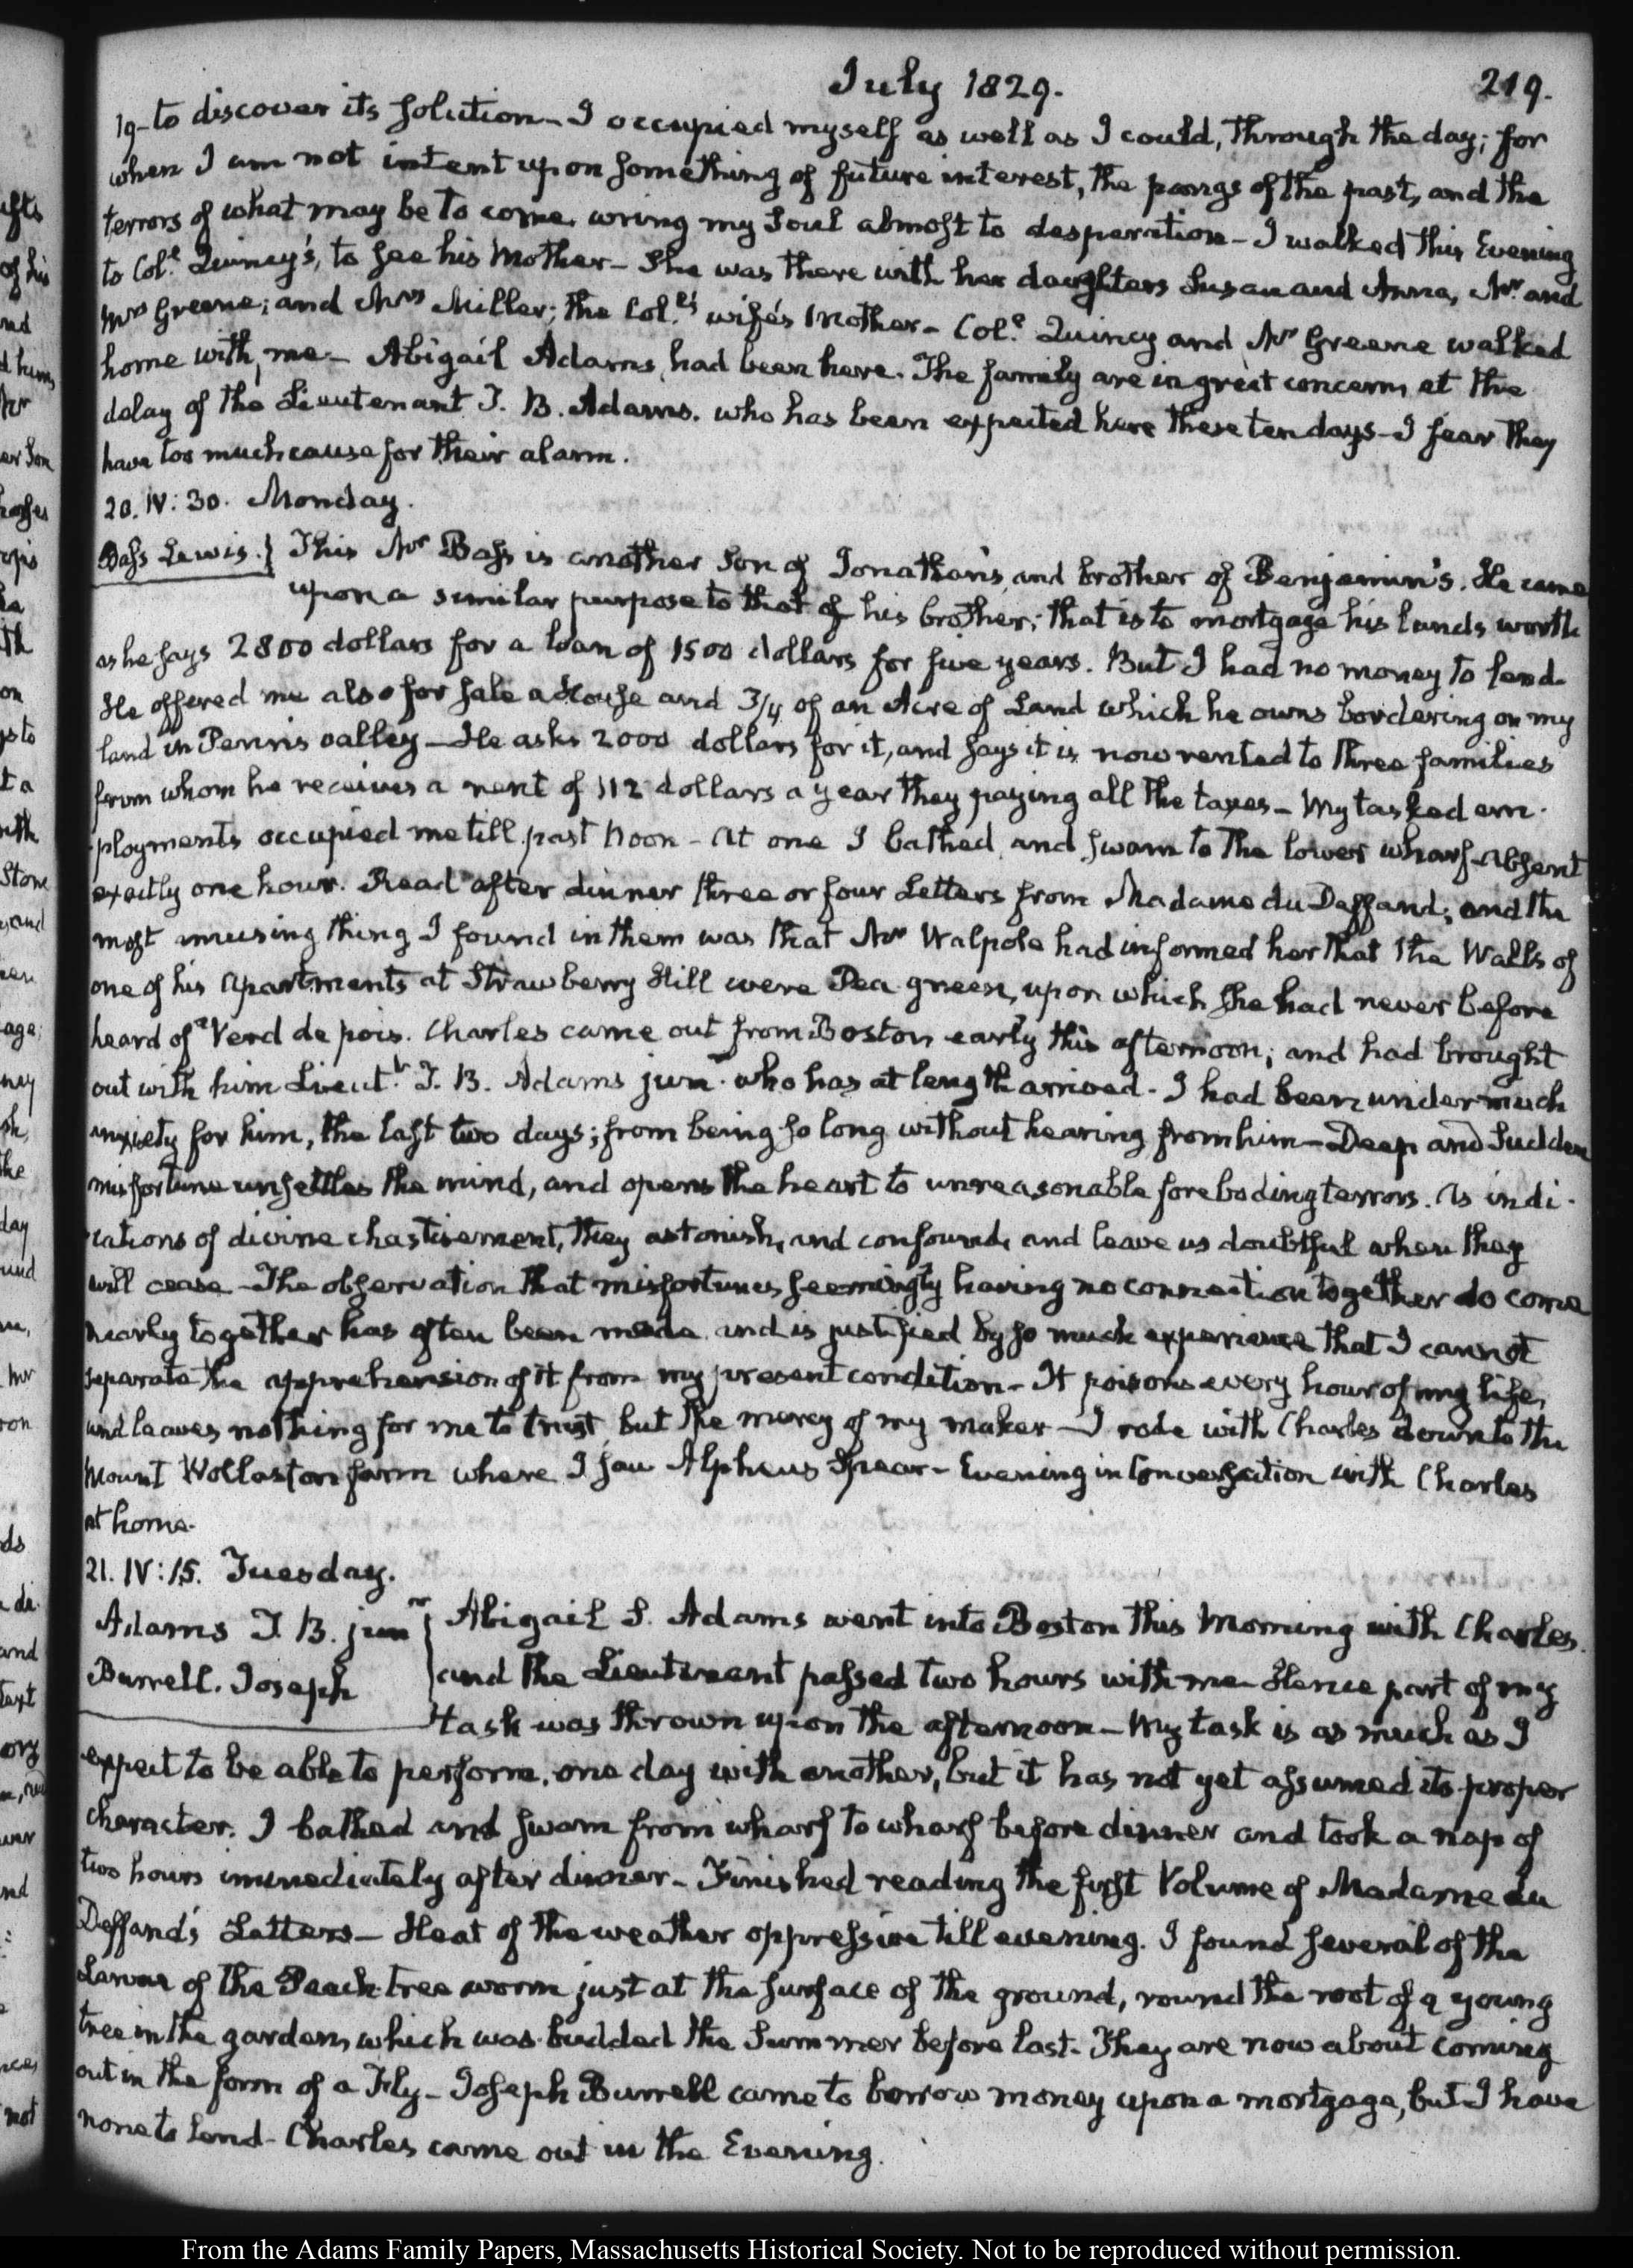 July 1829. 219.
19- to discover its solution- I occupied myself as well as I could, through the day; for
when I am not intent upon something of future interest, the pangs of the past, and the
terrors of what may be to come, wring my Soul almost to desperation- I walked this Evening
to Col.ᵉ Quincy's, to see his Mother- She was there with her daughters Susan and Anna, Mr. and
Mrs Greene; and Mrs Miller; the Col.ᵉˡ's wife's Mother- Col.ᵉ Quincy and Mr Greene walked
home with me- Abigail Adams, had been here. The family are in great concern, at the
delay of the Lieutenant T. B. Adams. who has been expected here these ten days- I fear they
have too much cause for their alarm.
20. IV: 30. Monday.
Bass Lewis. } This Mr Bass is another Son of Jonathan's and brother of Benjamin's. He came
upon a similar purpose to that of his brother; that is to mortgage his lands worth
as he says 2800 dollars for a loan of 1500 dollars for five years. But I had no money to lend.
He offered me also for sale a House and 3/4 of an Acre of Land which he owns bordering on my
land in Penn's valley- He asks 2000 dollars for it, and says it is now rented to three families
from whom he receives a rent of 112 dollars a year they paying all the taxes- My tasked em-
ployments occupied me till past Noon- At one I bathed and swam to the lower wharf- Absent
exactly one hour. Read after dinner three or four Letters from Madame du Deffand; and the
most amusing thing I found in them was that Mr Walpole had informed her that the Walls of
one of his Apartments at Strawberry Hill were Pea green, upon which she had never before
heard of a Verd de pois. Charles came out from Boston early this afternoon; and had brought
out with him Lieut.ᵗ T. B. Adams junr. who has at length arrived- I had been under much
anxiety for him, the last two days; from being so long without hearing from him- Deep and Sudden
misfortune unsettles the mind, and opens the heart to unreasonable foreboding terrors. As indi-
cations of divine chastisement, they astonish, and confound, and leave us doubtful when they
will cease- The observation that misfortunes seemingly having no connection together do come
nearly together has often been made and is justified by so much experience that I cannot
separate the apprehension of it from my present condition- It poisons every hour of my life,
and leaves nothing for me to trust but the mercy of my maker- I rode with Charles down to the
Mount Wollaston farm where I saw Alpheus Spear- Evening in Conversation with Charles
at home.
21. IV: 15. Tuesday.
Adams T. B. junr } Abigail S. Adams went into Boston this Morning with Charles.
Burrell. Joseph } and the Lieutenant passed two hours with me- Hence part of my
task was thrown upon the afternoon- My task is as much as I
expect to be able to perform, one day with another, but it has not yet assumed its proper
character. I bathed and swam from wharf to wharf before dinner and took a nap of
two hours immediately after dinner- Finished reading the first Volume of Madame du
Deffand's Letters- Heat of the weather oppressive till evening. I found several of the
Larvae of the Peach-tree worm just at the surface of the ground, round the root of a young
tree in the garden, which was budded the Summer before last- They are now about coming
out in the form of a Fly- Joseph Burrell came to borrow money upon a mortgage, but I have
none to lend- Charles came out in the Evening.
From the Adams Family Papers, Massachusetts Historical Society. Not to be reproduced without permission.